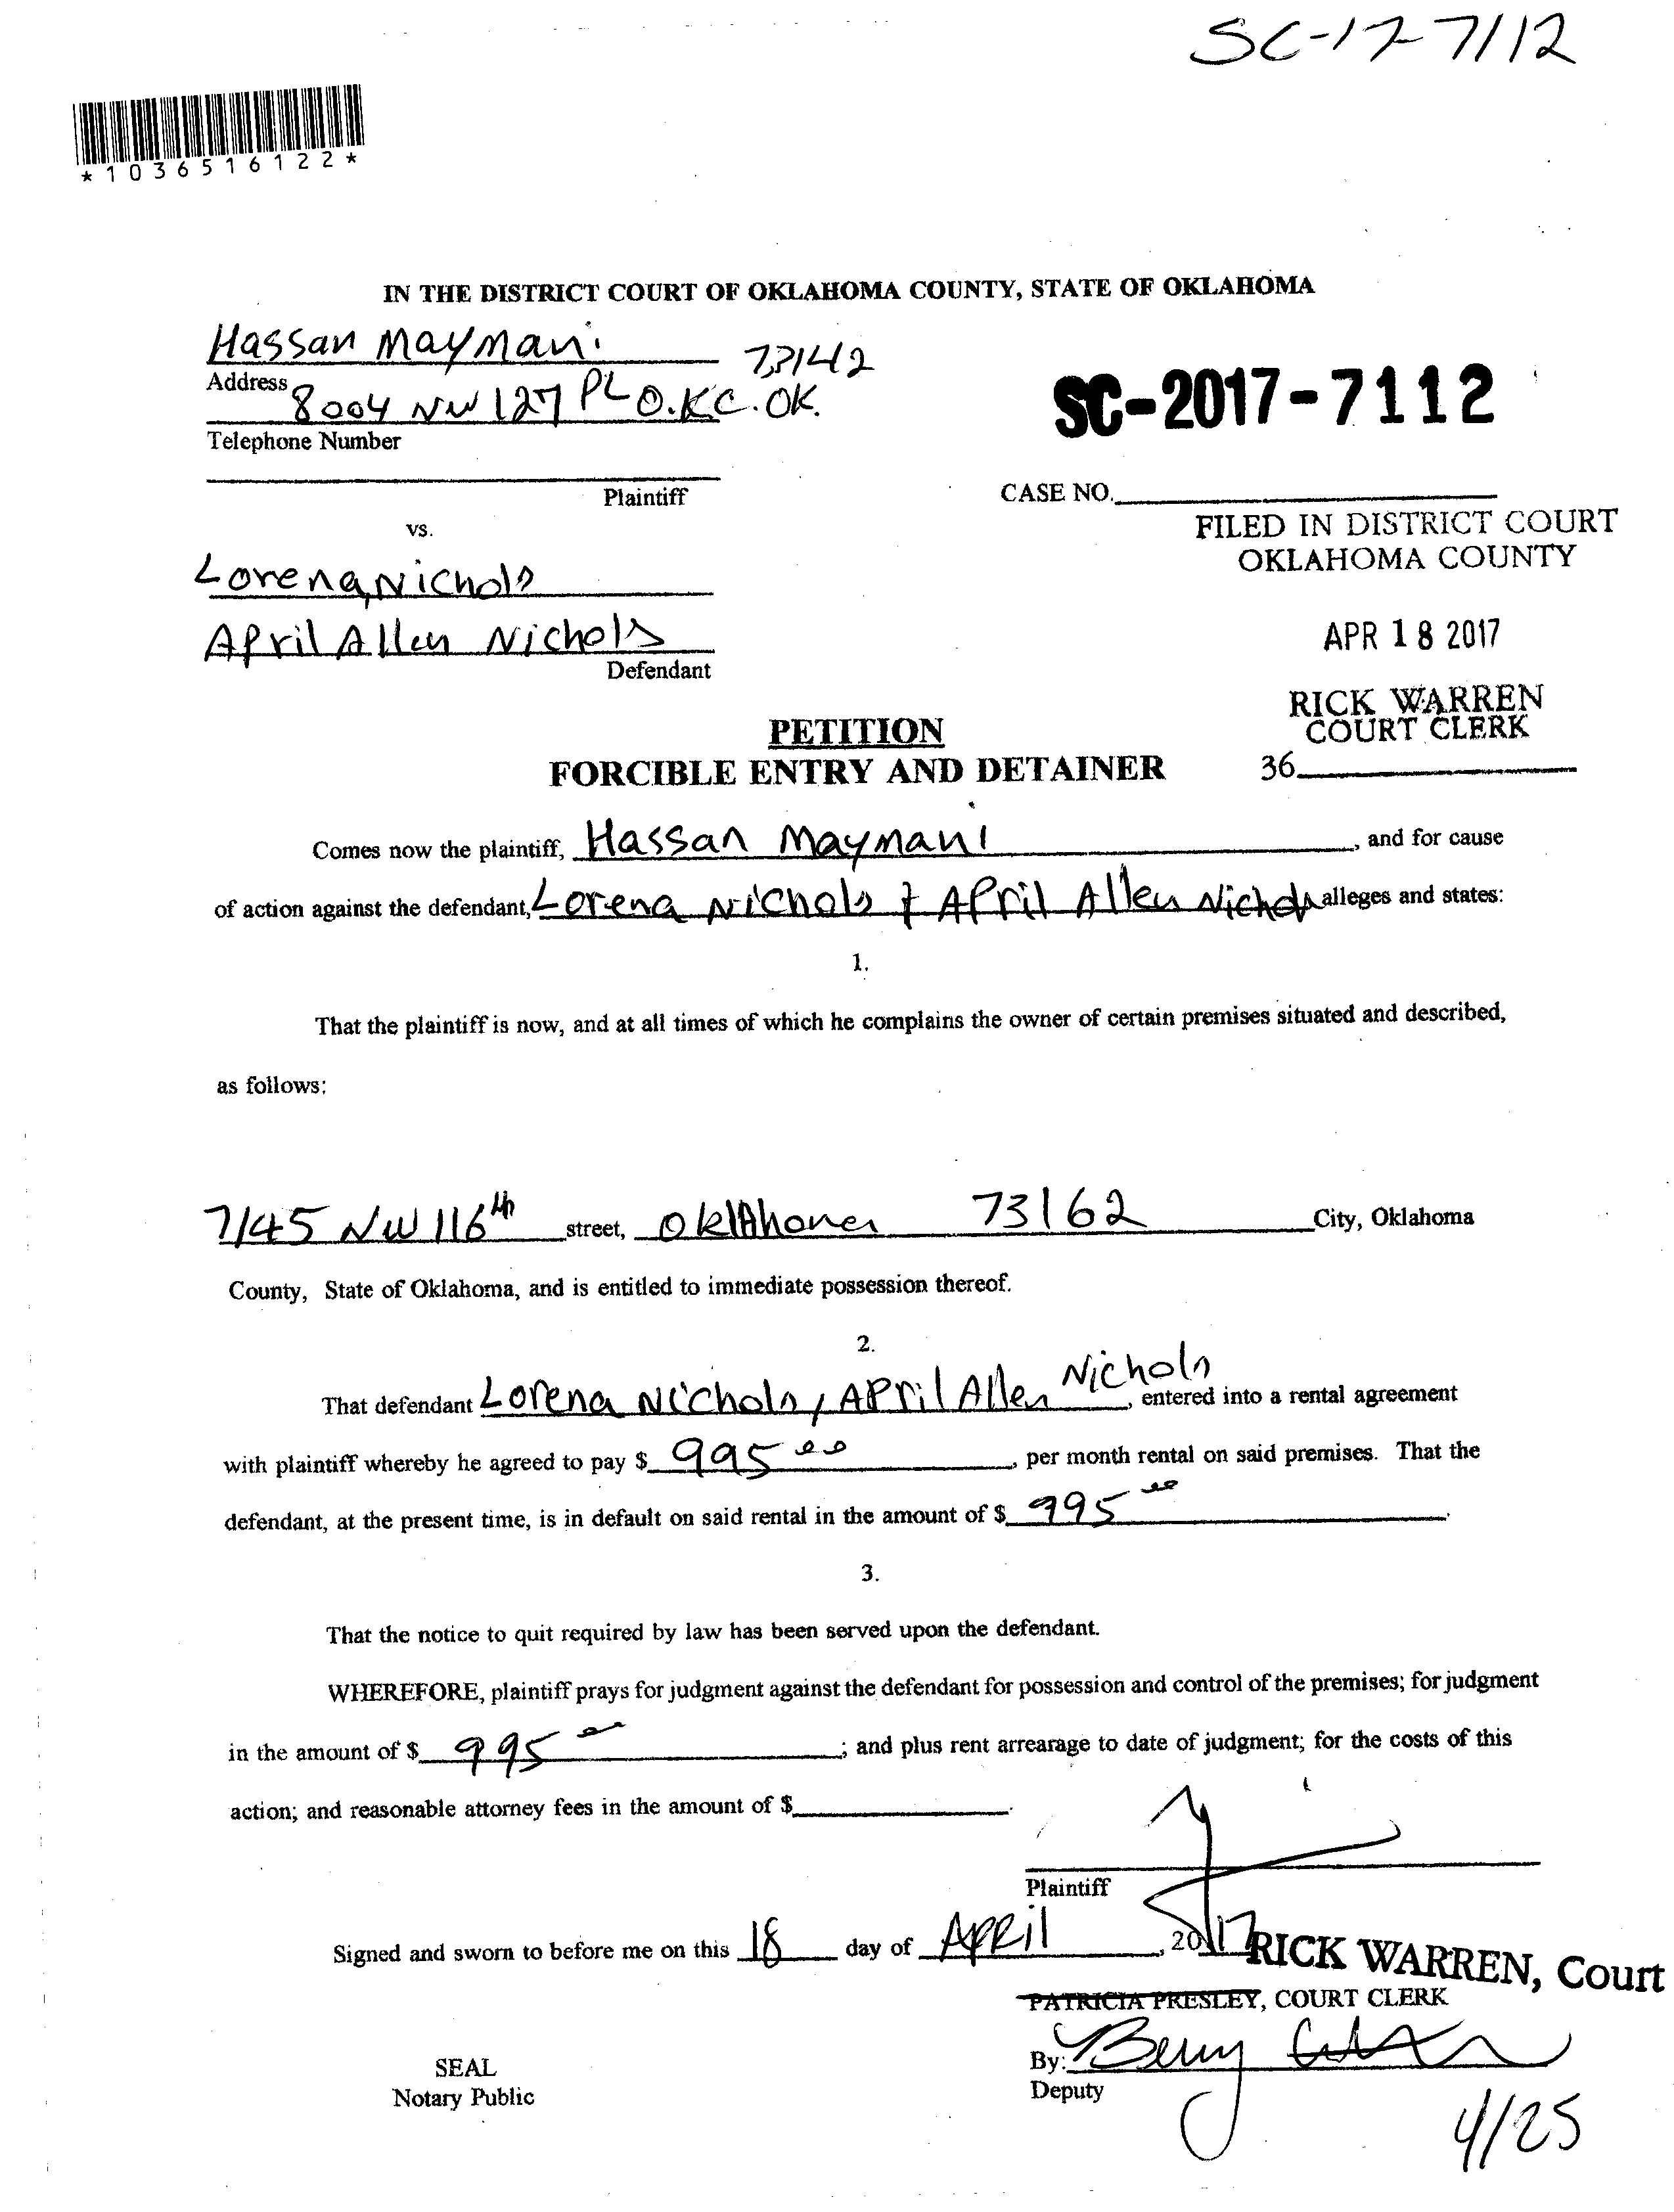 SC-17-7112
*1036516122*
IN THE DISTRICT COURT OF OKLAHOMA COUNTY, STATE OF OKLAHOMA
Hassan Maymani
73142
Address
8004 NW 127 PL O.KC. OK.
SC-2017-7112
Telephone Number
Plaintiff
CASE NO.
vs.
FILED IN DISTRICT COURT
OKLAHOMA COUNTY
Lorena, Nichols
April Allen Nichols
Defendant
APR 18 2017
RICK WARREN
COURT CLERK
36
PETITION
FORCIBLE ENTRY AND DETAINER
Comes now the plaintiff, Hassan Maymani, and for cause
of action against the defendant, Lorena Nichols & April Allen Nichols alleges and states:
1.
That the plaintiff is now, and at all times of which he complains the owner of certain premises situated and described,
as follows:
7145 NW 116th street, Oklahoma 73162 City, Oklahoma
County, State of Oklahoma, and is entitled to immediate possession thereof.
2.
That defendant Lorena Nichols, April Allen Nichols, entered into a rental agreement
with plaintiff whereby he agreed to pay $ 995 00, per month rental on said premises. That the
defendant, at the present time, is in default on said rental in the amount of $ 995 00.
3.
That the notice to quit required by law has been served upon the defendant.
WHEREFORE, plaintiff prays for judgment against the defendant for possession and control of the premises; for judgment
in the amount of $ 995 00; and plus rent arrearage to date of judgment; for the costs of this
action; and reasonable attorney fees in the amount of $.
Plaintiff
Signed and sworn to before me on this 18 day of APRil, 2017
RICK WARREN, Court
PATRICIA PRESLEY, COURT CLERK
By:
Deputy
SEAL
Notary Public
4/25